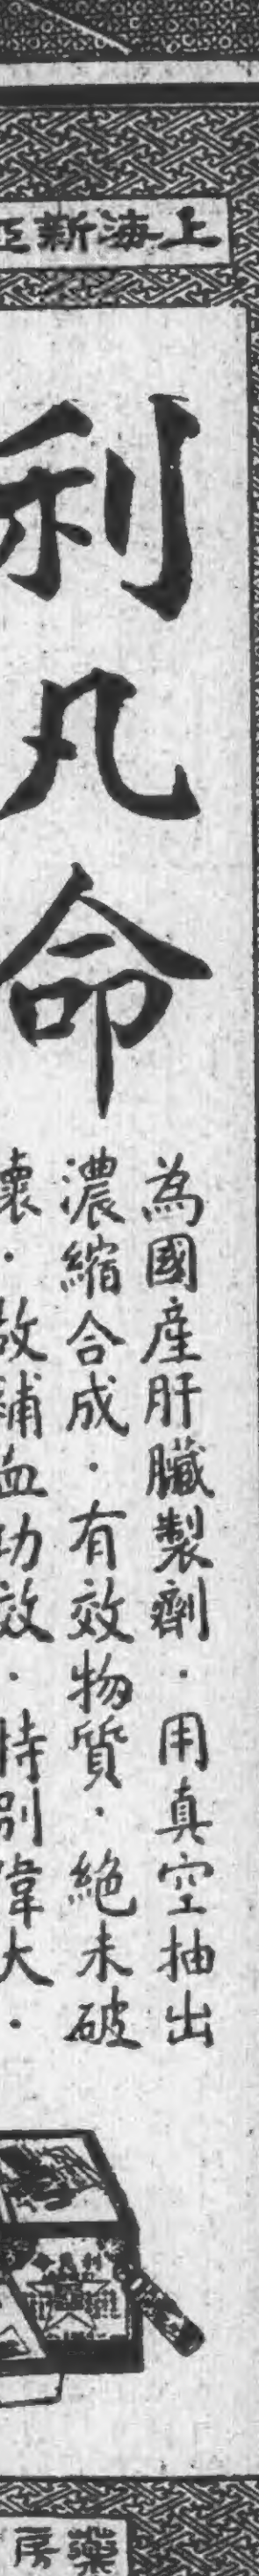 上海新亞
利凡命
為國產肝臟製劑．用真空抽出
濃縮合成．有效物質．絕未破
壞．故補血功效．特別偉大．
藥房